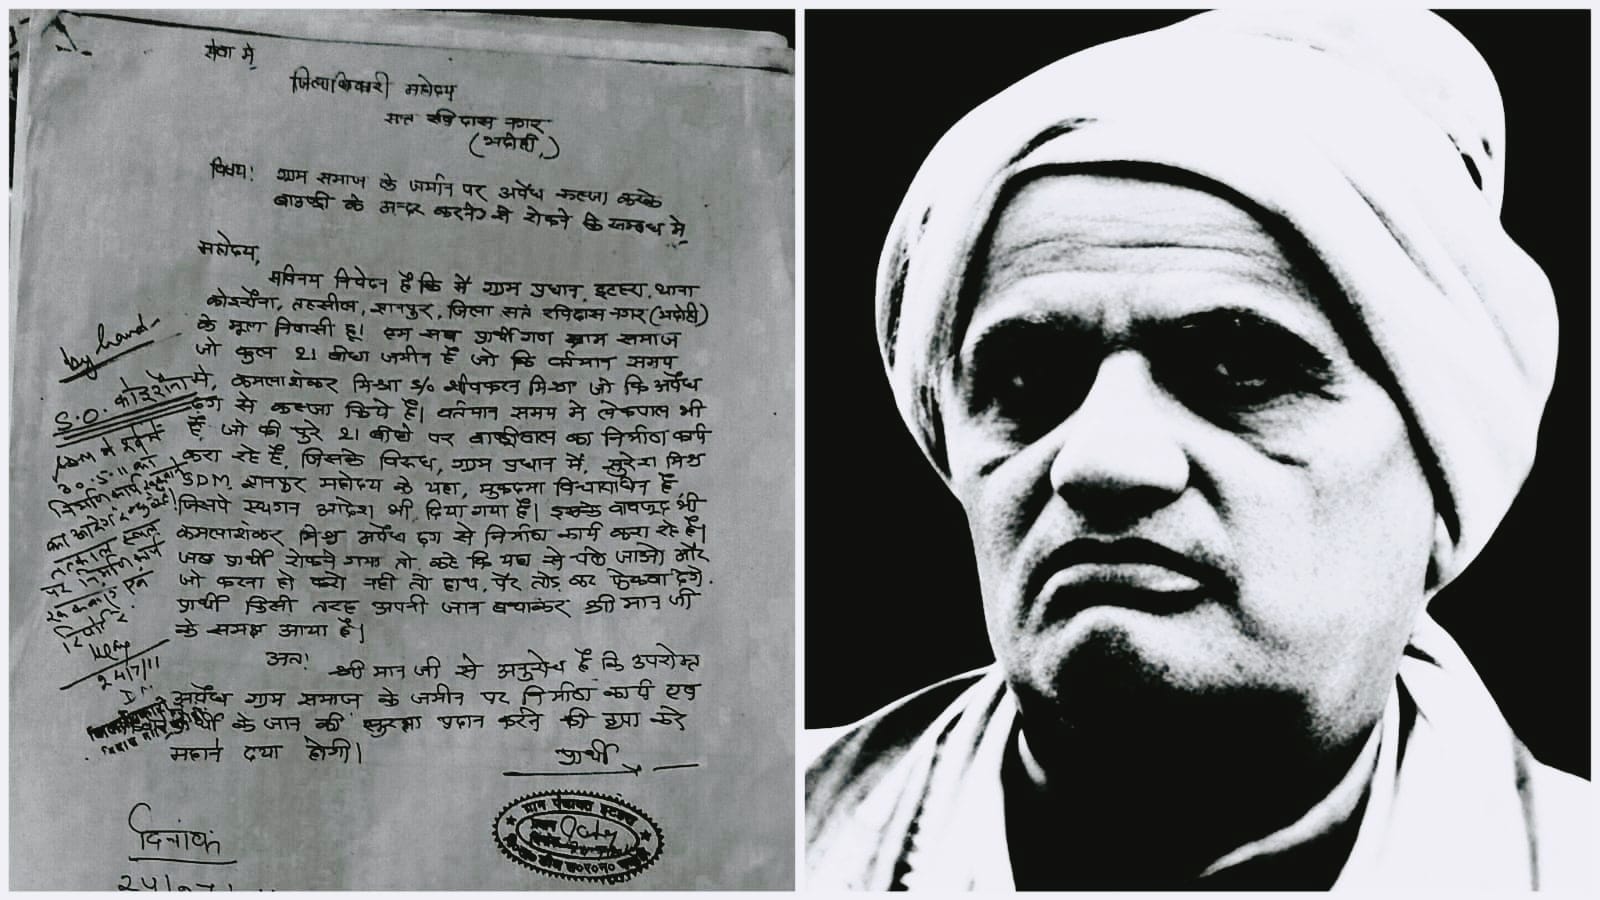 सेवा में
जिलाधिकारी महोदय
सन्त रविदास नगर
(भदोही)
विषय! ग्राम समाज के जमीन पर अवैध कब्जा करके
बाउन्ड्री के अन्दर करने से रोकने कि सम्बन्ध में
महोदय,
सविनय निवेदन है कि मै ग्राम प्रधान, इटहरा, थाना
कोइरौना, तहसील, ज्ञानपुर, जिला सतं रविदास नगर (भदोही)
के मूल निवासी हूं। हम सब प्रार्थी गण ग्राम समाज
जो कुल 21 बीघा जमीन है जो कि वर्तमान समय
मे, कमलाशंकर मिश्रा S/० श्रीपकरन मिश्रा जो कि अवैध
ढ़ग से कब्जा किये है। वर्तमान समय मे लेकपाल भी
है, जो की पुरे 21 बीघे पर का निर्माण कार्य
करा रहे है, जिसके विरुध, ग्राम प्रधान में, सुरेश मिश्र
SDM, ज्ञानपुर महोदय के यहा, मुकदमा विचाराधिन है,
जिसपे स्थगन आदेश भी दिया गया है। इसके वावजूद भी
कमलाशंकर मिश्र अवैध ढ़ग से निर्माण कार्य करा रहे है।
जब प्रार्थी रोकने गया तो, कहे कि यहा से चले जाओ और
जो करना हो करो नही तो हाथ, पैर तोड़ कर फेकवा देगे.
प्रार्थी किसी तरह अपनी जान बचाकर श्री मान जी
के समक्ष आया है।
अतः! श्री मान जी से अनुरोध है कि उपरोक्त
अवैध ग्राम समाज के जमीन पर निर्माण कार्य एव
प्रार्थी के जान की सुरक्षा प्रदान करने की कृपा करे
महान दया होगी।
प्रार्थी
by hand
S.O. कोइरौना
SDM ने
30.5.11 को
निर्माण कार्य
का आदेश
तत्काल
पर निर्माण कार्य
रूकवाएं एवं
रिपोर्ट दे.
24/7/11
ग्राम पंचायत इटहरा
दिनांक